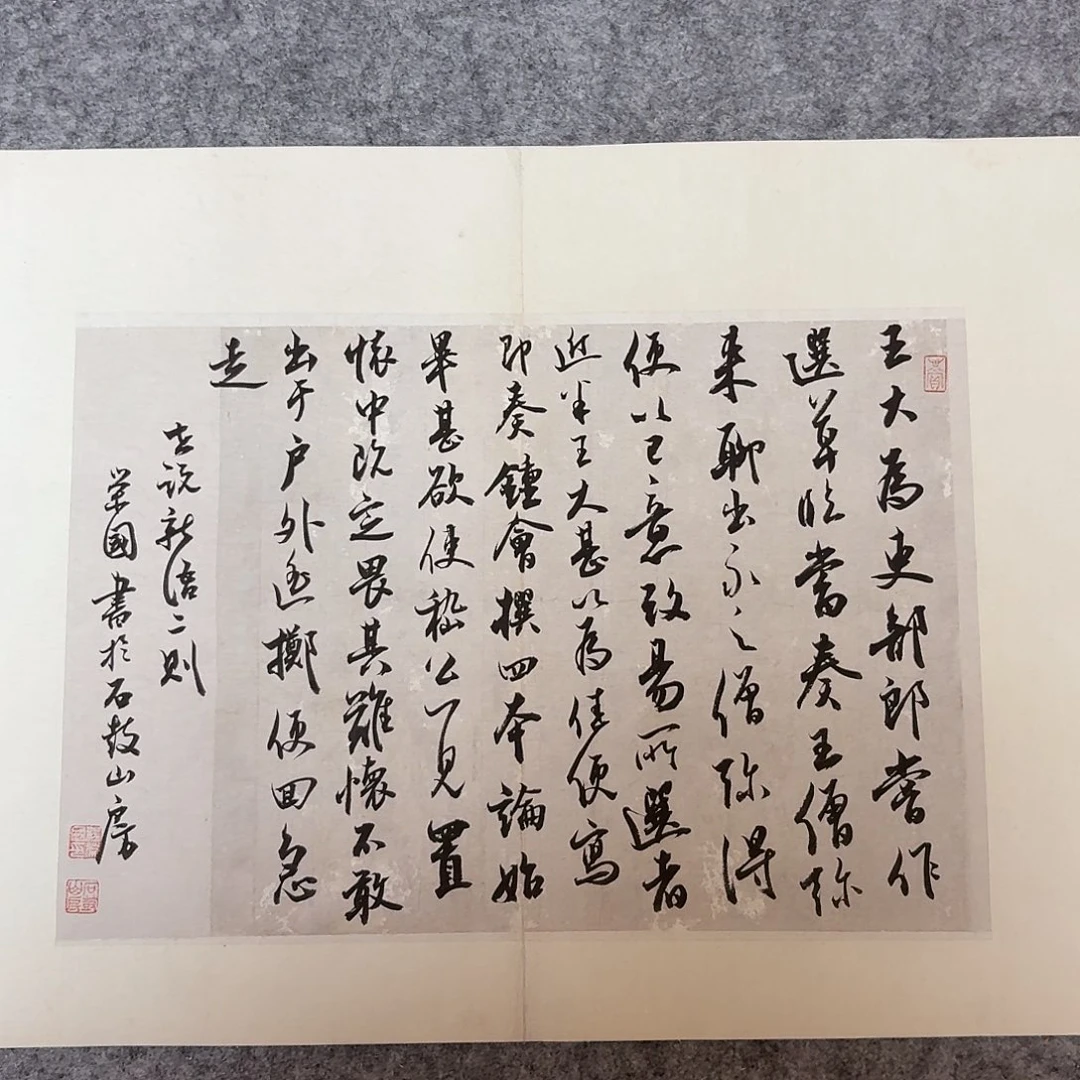 王大為吏部郎嘗作
選草臨當奏王僧弥
来聊出示之僧弥得
便以己意改易所選者
近半王大甚以為佳便寫
即奏鍾會撰四本論始
畢甚欲使嵇公一見置
懷中既定畏其難懷不敢
出于户外遥擲便回急
走
世説新語二則
荣國書於石鼓山房